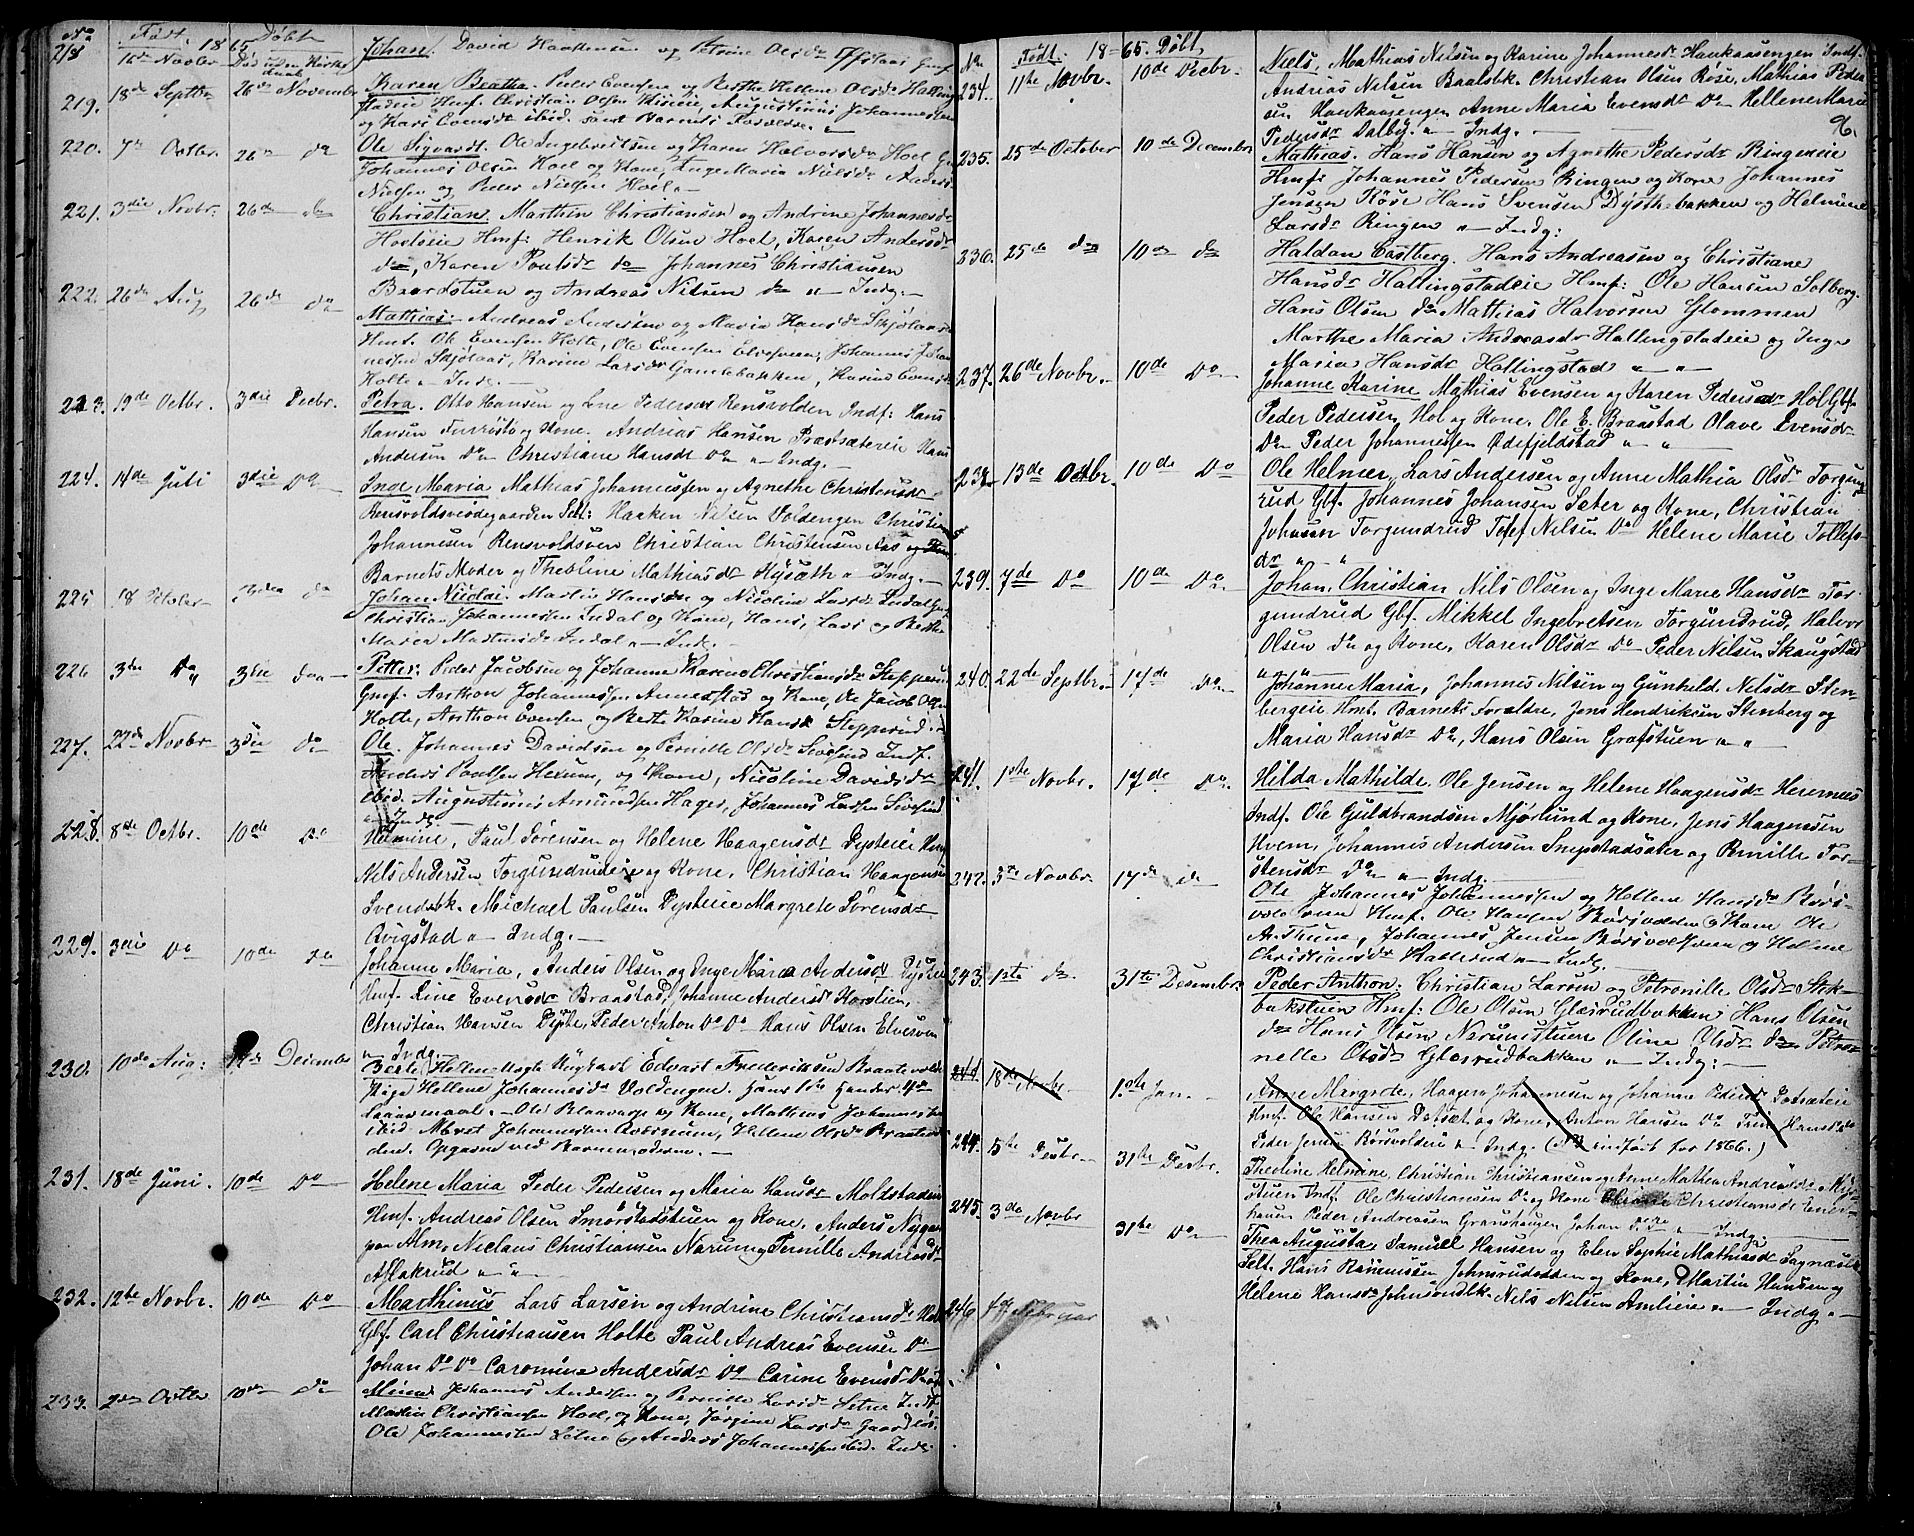 No Født. 18 65 Døbt
218 16de Novbr Død uden Kirkedaab Johan. David Haakensen og Petrine Olsdr
219. 18de Septbr 26de November Karen Beathe. Peder Evensen og Berthe Hellene Olsdr Halling-
stadeie Hmf. Christian Olsen Augustinus Johannessen
og Kari Evensdr ibid. samt Barnets Forældre
220. 7de Octbr. 26de do Ole Sigvardt. Ole Ingebretsen og Karen Halvorsdr Hoel G
Johannes Olsen Hoel og Kone, Inge Maria Nielsdr Anders
Nielsen og Peder Nielsen Hoel
221. 3die Novbr: 26de do Christian. Marthin Christiansen og Andrine Johannesdr
Hoelseie Hmf: Henrik Olsen Hoel, Karen Andersdr
do, Karen Poulsdr do Johannes Christiansen
Baardstuen og Andreas Nilsen do Indg.
222. 26de Aug 26de do Mathias. Andreas Andersen og Maria Hansdr Skjølaas
Hmf. Ole Evensen Holte, Ole Evensen Elvesveen, Johannes Johan
nesen Skjølaas, Karine Larsdr Gamlebakken, Karine Evensdr
Holte Indg.
223. 19de Octbr. 3die Decbr. Petra. Otto Hansen og Lene Pedersdr Rensvolden Indf: Hans
Hansen Furrosta og Kone. Andreas Hansen Præstsætereie Hans
Andersen Do Christiane Hansdr Do Indg.
224. 14de Juli 3die Do Inde Maria Mathias Johannessen og Agnethe Christensdr
Selt: Haaken Nilsen Voldengen Christian
Johannesen Rensvoldsveen Christian Christensen Aas og
Barnets Moder og Theoline Mathiasdr Indg.
225 18 Octobr 3die do Johan Nicolai. Martin Hansen og Nicoline Larsdr Indal
Christian Johannessen Indal og Kone, Hans, Lars og Berthe
Maria Martinsdr Indal Indg.
226 3die Do 3die Do Petter. Peder Jacobsen og Johanne Karine Christiansdr Stepperud
Gmf. Anthon Johannessen Annexstad og Kone, Ole Jacob
Holte, Anthon Evensen og Berte Karine Hansdr Stepperud.
227. 22de Novbr 3die do Ole. Johannes Davidsen og Pernille Olsdr Sivesind Indf.
Anders Paulsen Hexum, og Kone, Nicoline Davidsdr
ibid. Augustinus Amundsen Hager, Johannes Larsen Sivesind
Indg.
228. 8de Octbr. 10de Do Helmine, Paul Sørensen og Helene Haagensdr Dysteeie Hmf
Nils Andersen Torgundrudeie og Kone, Christian Haagensen
Svendsbk. Michael Paulsen Dysteeie Margrete Sørensdr
Qvigstad Indg.
229. 3die Do 10de do Johanne Maria, Anders Olsen og Inge Maria Andersdr Dysteeie
Hmf. Line Evensdr Braastad, Johanne Andersdr Korslien,
Christian Hansen Dyste, Peder Anton Do Do Hans Olsen Elvesveen
Indg.
230. 10de Aug: 17de Decembr Berte Hellene uægte Ungkarl Edvart Frederiksen Braatevolden
Pige Hellene Johannesdr Voldengen.
Ole Blaavarp og Kone, Mathias Johannessen
ibid. Meret Johannessen Hellene Olsdr Braatevol
den. Opgivet ved Barnemoderen.
231. 18de Juni. 10de Do Helene Maria Peder Pedersen og Maria Hansdr Molstadeie
Hmf. Andreas Olsen Smørstadstuen og Kone, Anders Nygaard
paa Alm. Niclaus Christiansen Narum og Pernille Andreasdr
Aflakrud
232. 12te Novbr. 10de Do Marthinus Lars Larsen og Andrine Christiansdr Holte
Gbf. Carl Christiansen Holte Paul Andreas Evensen Do
Johan Do Do Caromine Andersdr Do Carine Evensdr
233. 2den Octbr 10de Do Mina Johannes Andersen og Pernille Larsdr Setne Indf.
Martin Christiansen Hoel, og Kone, Jørgine Larsdr
Ole Johannessen Setne og Anders Johannessen ibid. Indg.
96.
No Født. 18=65. Døbt
234. 11te Novbr. 10de Decbr. Niels, Mathias Nilsen og Karine Johannesdr Haukaasengen Indf.
Andreas Nilsen Baalsbk. Christian Olsen Røise, Mathias Peder
sen Haukaasengen Anne Maria Evensdr Do Hellene Marie
Pedersdr Dalby. Indg.
235. 25de October 10de December Mathias. Hans Hansen og Agnethe Pedersdr Ringeneie
Hmf: Johannes Pedersen Ringen og Kone Johannes
Jensen Røise Hans Svensen Dysthebakken og Helmine
Larsdr Ringen Indg:
236. 25de do 10de do Haldan Castberg. Hans Andreasen og Christiane
Hansdr Hallingstadeie Hmf: Ole Hansen Solberg.
Hans Olsen do Mathias Halvorsen Glommen
Marthe Maria Andreasdr Hallingstadeie og Inge
Maria Hansdr Hallingstad
237. 26de Novbr. 10de Do Johanne Karine Mathias Evensen og Karen Pedersdr Hol Gbf.
Peder Pedersen Hol og Kone, Ole E. Braastad Olave Evensdr
Do Peder Johannessen Odefjeldstad
238. 13de Octbr. 10de Do Ole Helmer, Lars Andersen og Anne Mathia Olsdr Torgund
rud Gbf. Johannes Johansen Sæter og Kone, Christian
Johansen Torgundrud Tosten Nilsen Do Helene Marie Tollefs
dr
239. 7de Do 10de Do Johan Christian Nils Olsen og Inge Marie Hansdr Tor-
gundrud Gbf. Mikkel Ingebretsen Torgundrud, Halvor
Olsen Do og Kone, Karen Olsdr Do Peder Nilsen Skaugstad
240. 22de Septbr. 17de Do Johanne Maria, Johannes Nilsen og Gunhild Nilsdr Sten-
bergeie Hmf. Barnets Forældre, Jens Hendriksen Stenberg og
Maria Hansdr Do, Hans Olsen Grafstuen
241. 1ste Novbr. 17de Do. Hilda Mathilde, Ole Jensen og Helene Haagensdr Herernees
Indf. Ole Guldbrandsen Mjørlund og Kone, Jens Haagensen
Hvem, Johannes Andersen Smestadsæter og Pernille Tor-
stensdr Do Indg.
242. 3die Novbr 17de do Ole Johannes Johannessen og Hellene Hansdr Børs-
volsveen Hmf. Ole Hansen Børsvolden og Kone Ole
A. Thune, Johannes Jensen Børsvolsveen og Helene
Christiansdr Hallerud Indg.
243. 1ste do 31te Desembr: Peder Anthon. Christian Larsen og Petronille Olsdr Stok-
bakstuen Hmf: Ole Olsen Glæsrudbakken Hans Olsen
do Hans Olsen Narumstuen Oline Olsdr do Petro-
nelle Olsdr Glæsrudbakken Indg:
244 18de Novbr. 1ste Jan. Anne Margrete, Haagen Johannesen og Johanne Pedersdr
Hmf. Ole Hansen Dotset og Kone, Anton Hansen Do Trine Hansdr do
Peder Jensen Børsvolden Indg. (NB indført for 1866.)
244. 15te Decbr. 31te Decbr. Theoline Helmine, Christian Christiansen og Anne Mathea Andreasdr
stuen Indf. Ole Christiansen Do og Kone Christiansdr
Peder Andreassen Granshaugen Johan Indg
245. 3de Novbr 31te Do Thea Augusta, Samuel Hansen og Elen Sophie Mathiasdr Sagnæseie
Selt. Hans Rasmussen Johnsrudodden og Kone, Martin Hansen og
Helene Hansdr Johnsrudbk. Nils Nilsen Amlieie Indg.
246 Februar